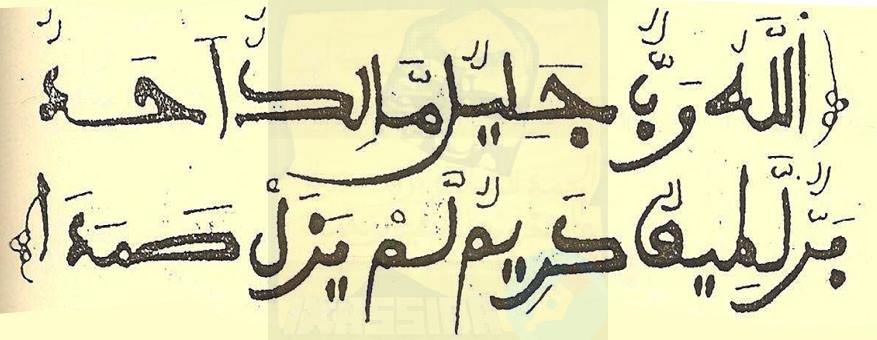 اللَّهُ رَبٌّ جَلِيلٌ مَّالِكٌ أَحَدٌ
بَرٌّ لَّطِيفٌ كَرِيمٌ لَّمْ يَزَلْ صَمَدَا